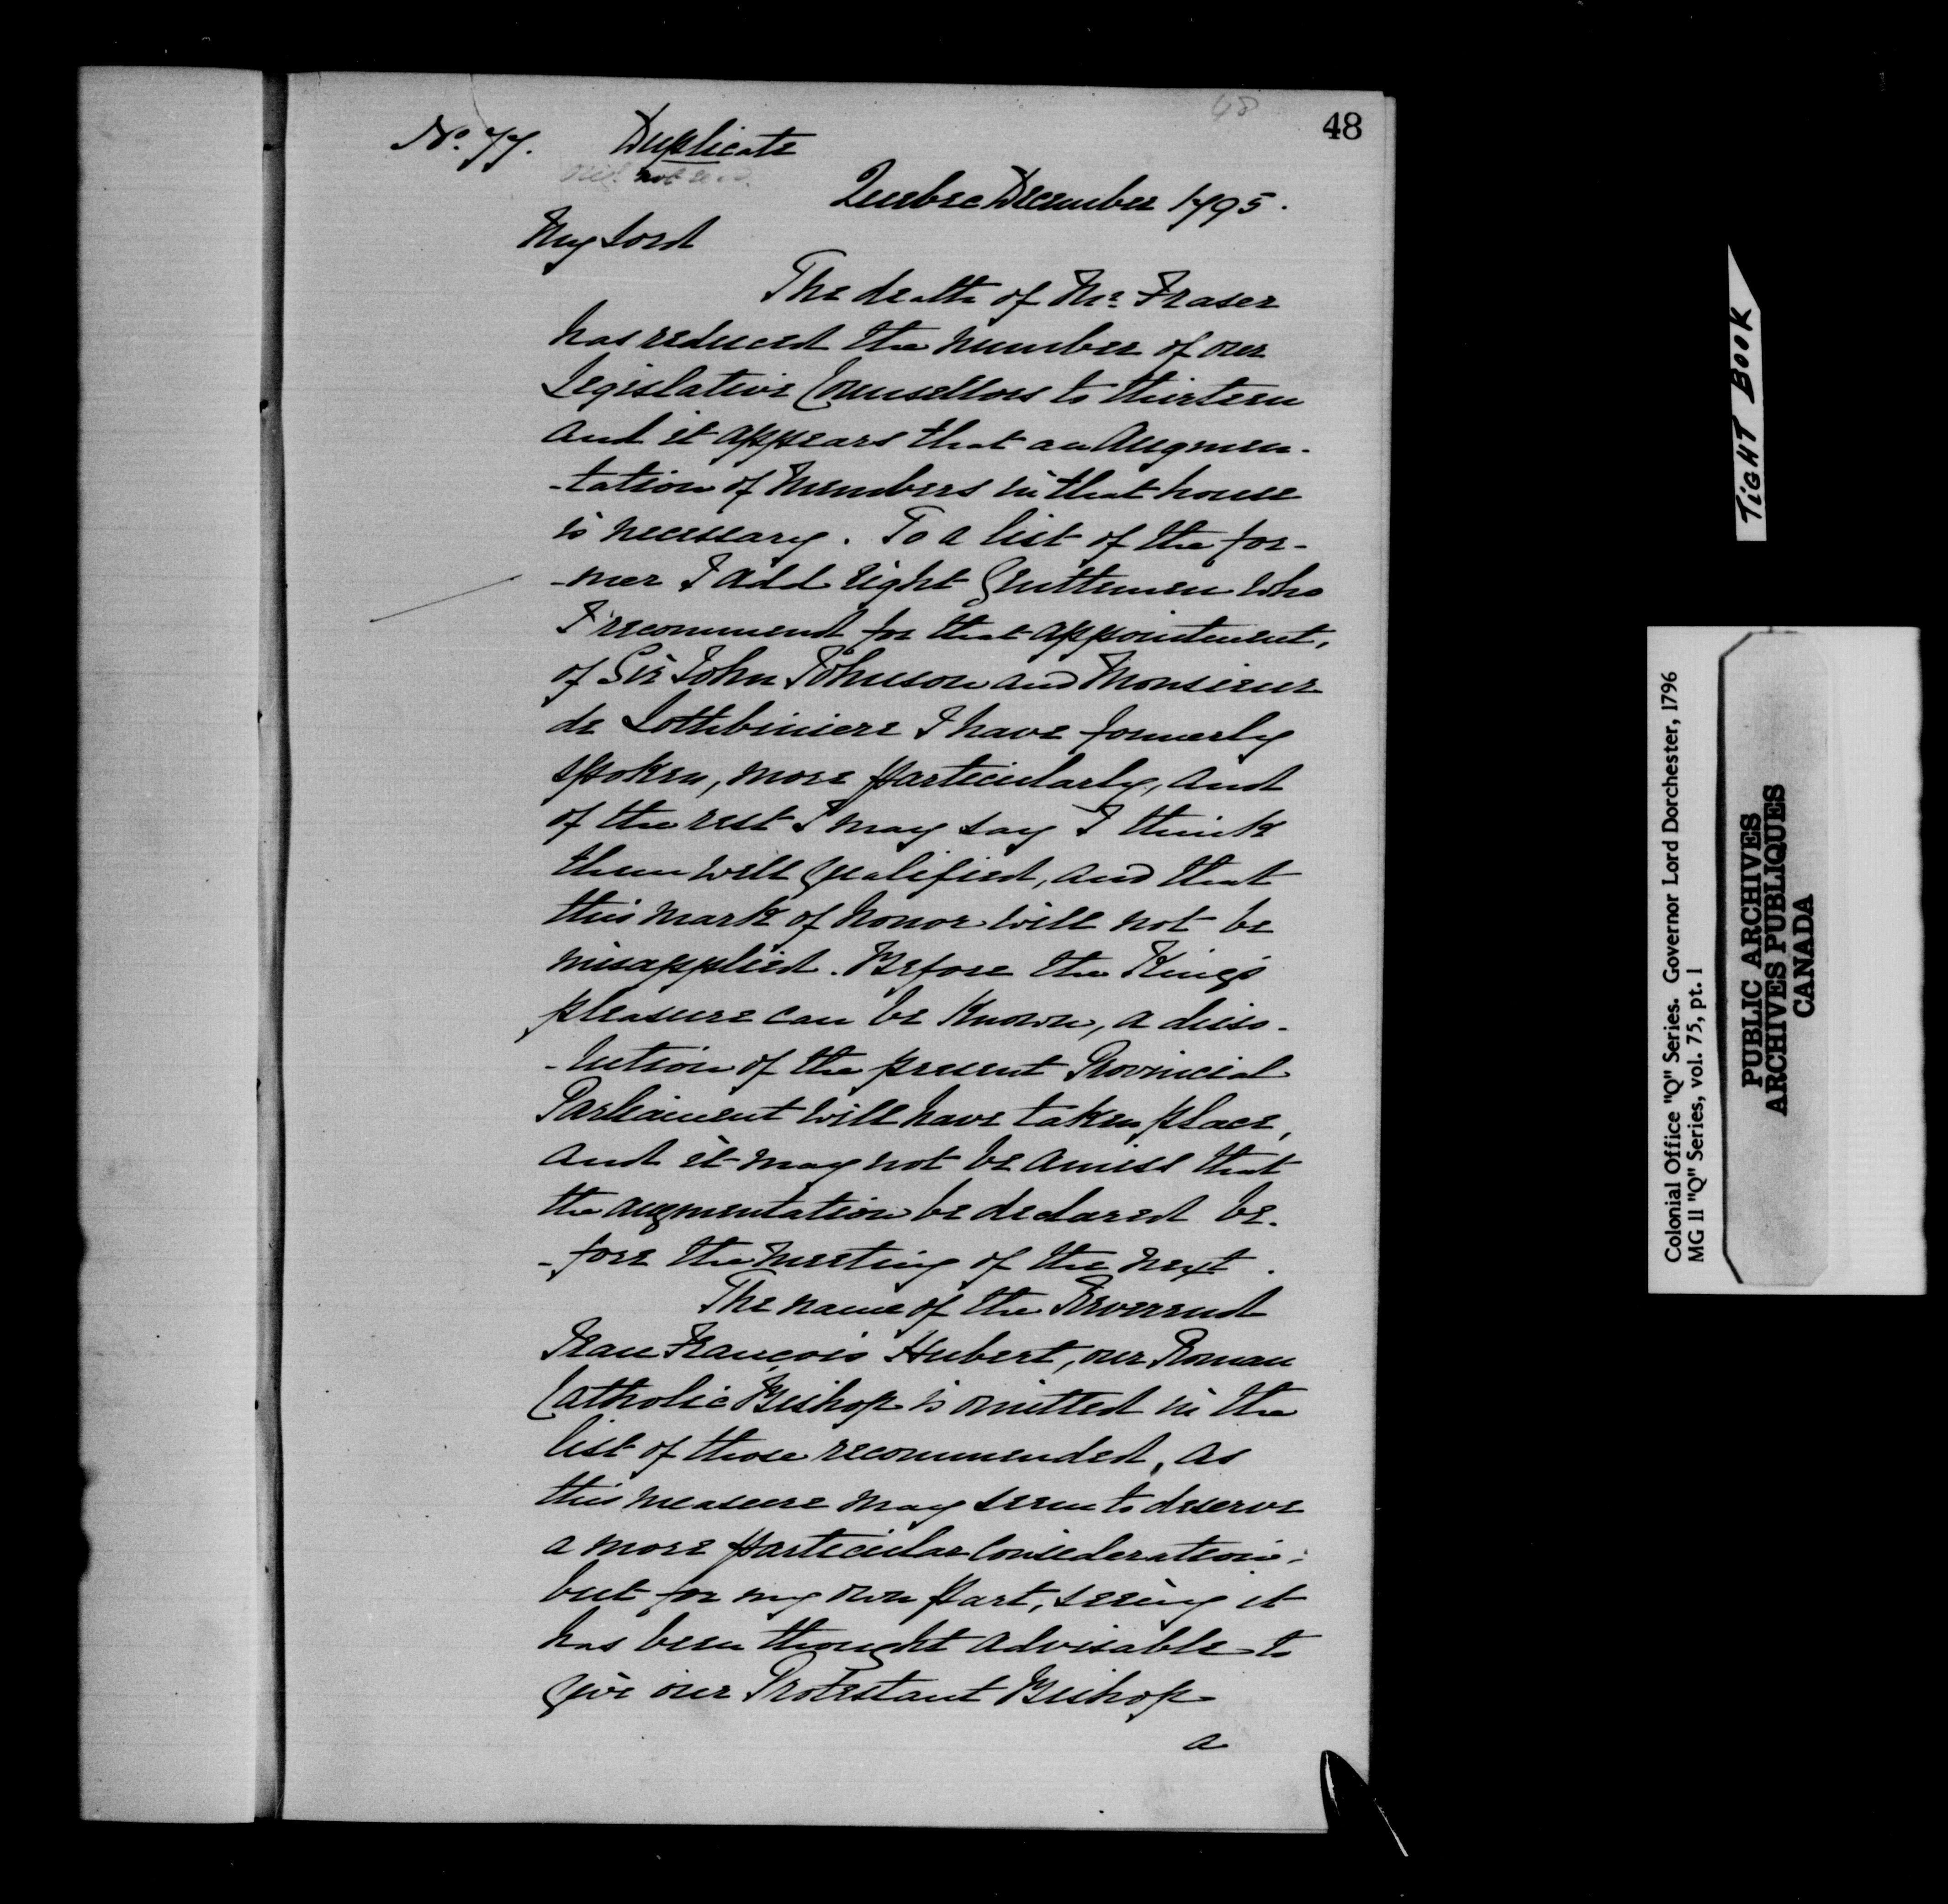 48
48
No. 77. Duplicate
Orig. not recd.
Quebec December 1795.
My Lord
The death of Mr. Fraser
has reduced the number of our
Legislative Counsellors to thirteen
and it appears that an Augmen-
-tation of Members in that house
is necessary. To a list of the for-
-mer I add eight Gentlemen who
I recommend for that appointment,
of Sir John Johnson and Monsieur
de Lotbiniere I have formerly
spoken, more particularly, and
of the rest I may say I think
them well qualified, and that
this mark of honor will not be
misapplied. Before the King's
pleasure can be known, a disso-
-lution of the present Provincial
Parliament will have taken place,
and it may not be amiss that
the augmentation be declared be-
-fore the meeting of the next.
The name of the Reverend
Jean François Hubert, our Roman
Catholic Bishop is omitted in the
list of those recommended, as
this measure may seem to deserve
a more particular consideration;
but for my own part, seeing it
has been thought advisable to
give our Protestant Bishop
a
TIGHT BOOK
Colonial Office "Q" Series. Governor Lord Dorchester, 1796
MG 11 "Q" Series, vol. 75, pt. 1
PUBLIC ARCHIVES
ARCHIVES PUBLIQUES
CANADA